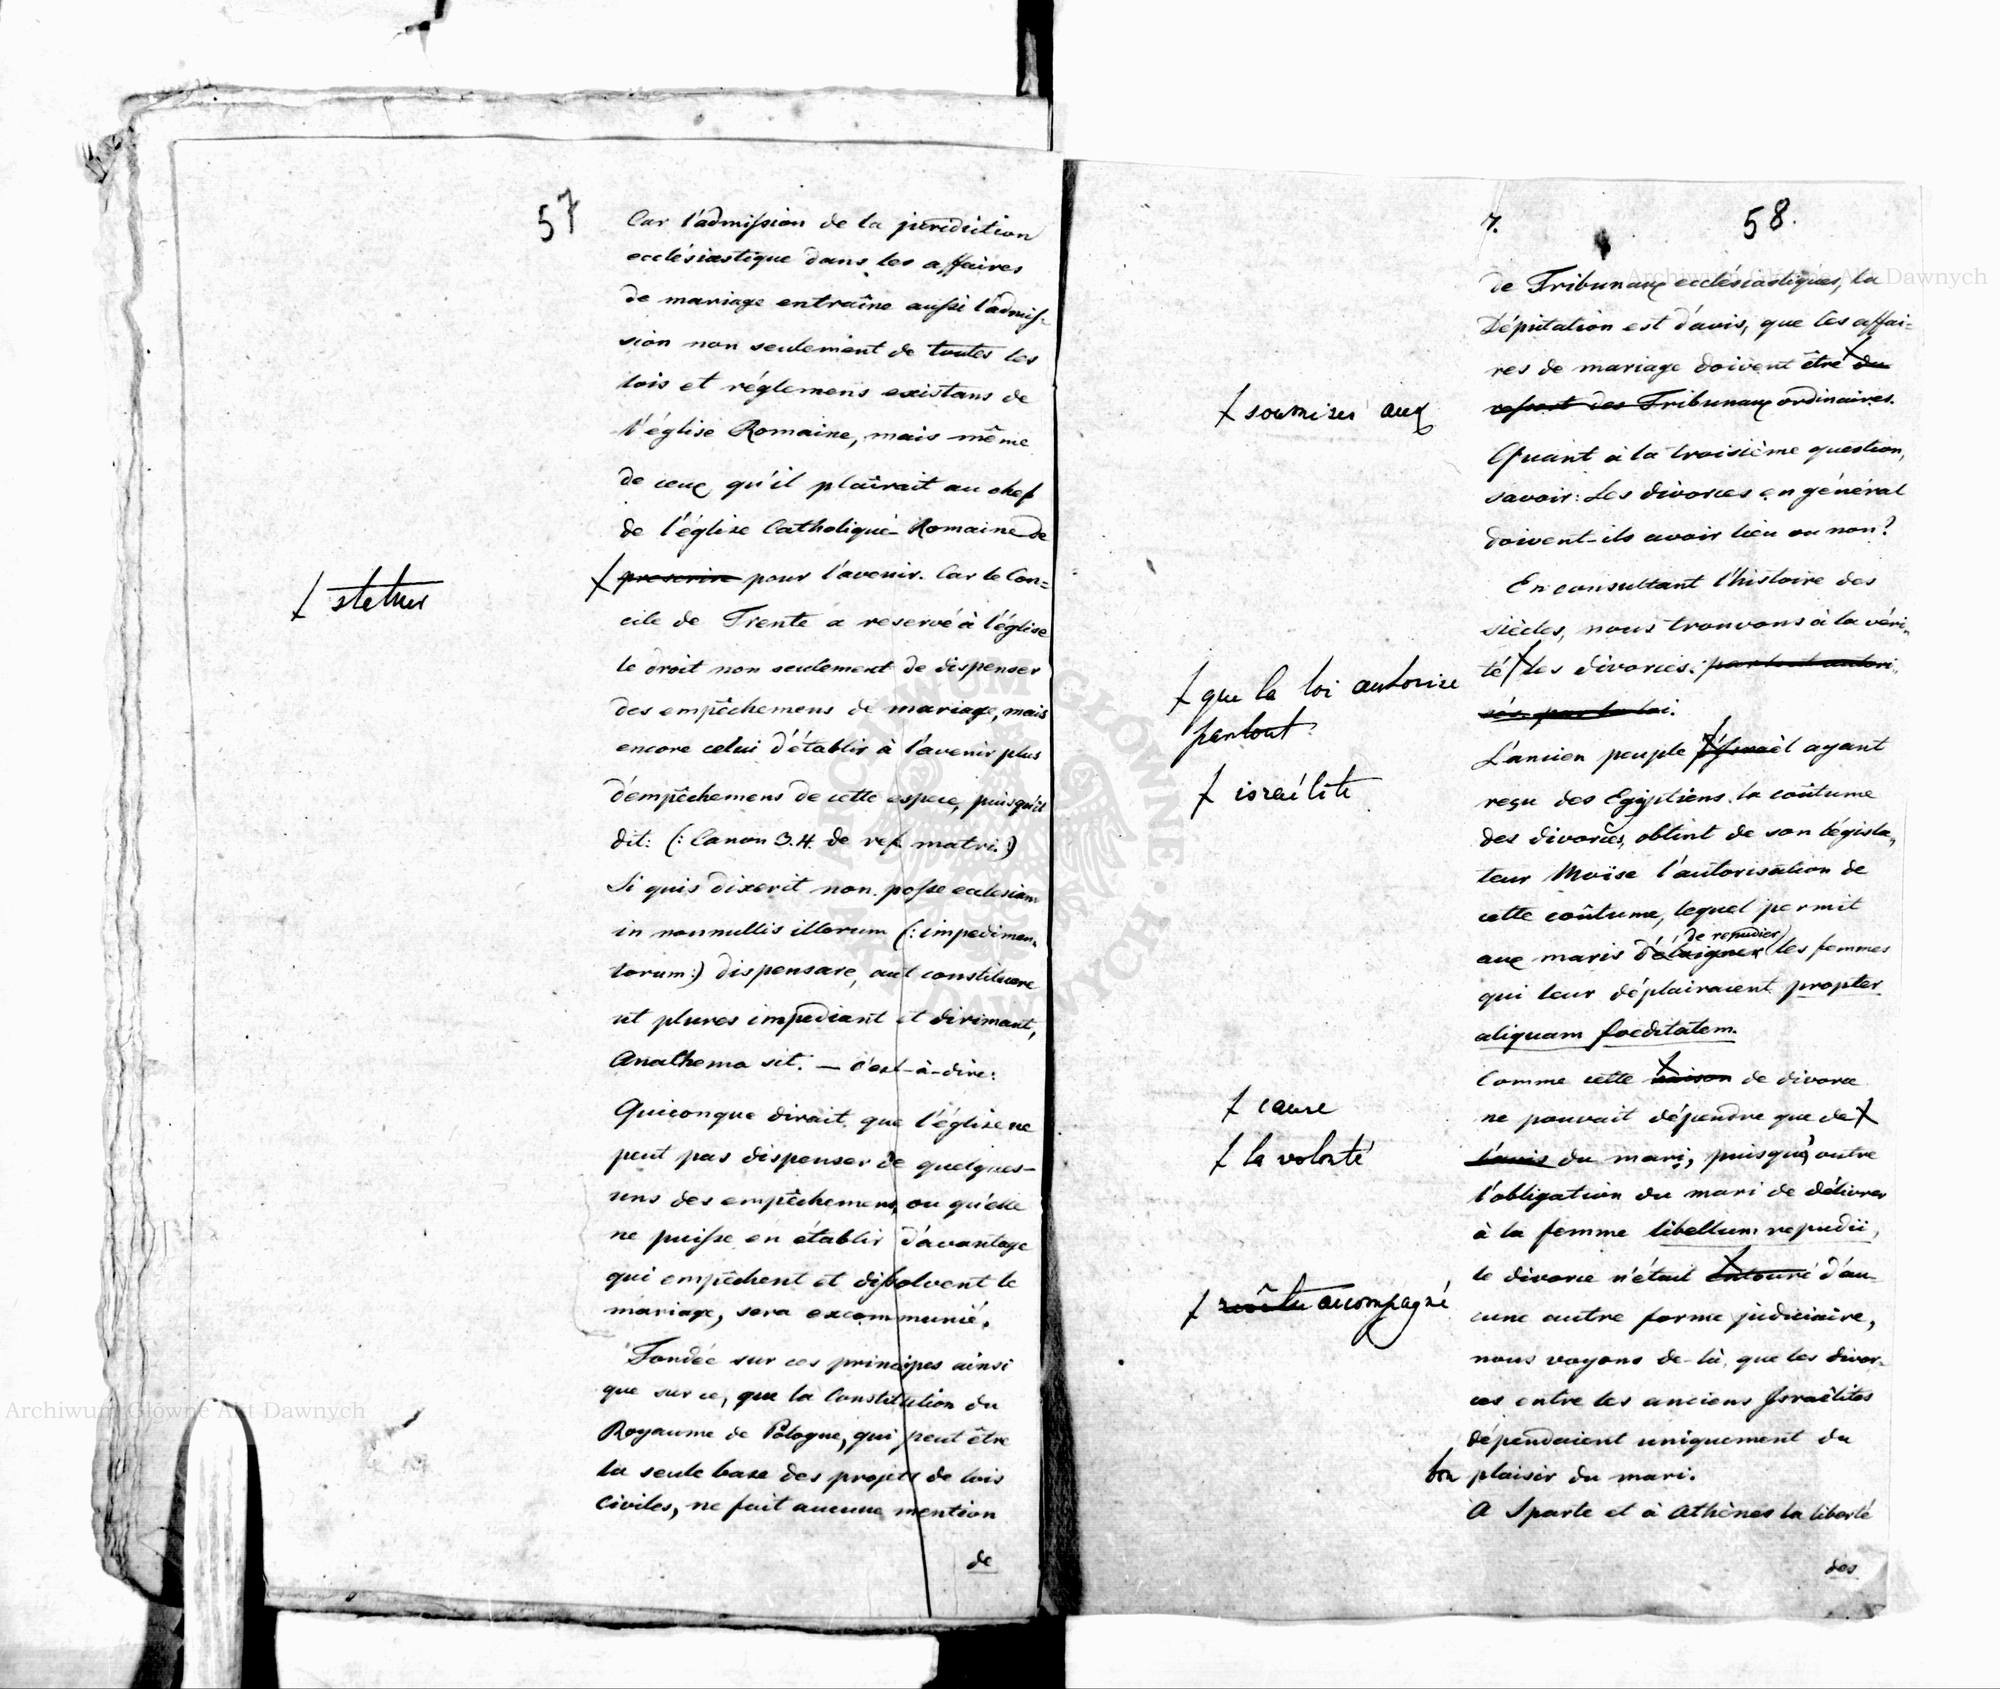 57
Car l'admission de la juridiction
ecclésiastique dans les affaires
de mariage entraîne aussi l'admis-
sion non seulement de toutes les
lois et réglemens existans de
l'église Romaine, mais même
de ceux qu'il plairait au chef
de l'église Catholique-Romaine de
prescrire pour l'avenir. Car le Con=
cile de Trente a reservé à l'église
le droit non seulement de dispenser
des empêchemens de mariage, mais
encore celui d'établir à l'avenir plus
d'empêchemens de cette espece, puisqu'il
dit: (: Canon 3.4. de ref. matri:)
Si quis dixerit non posse ecclesiam
in nonnullis illorum (: impedimen-
torum:) dispensare, aut constituere
ut plures impediant et dirimant,
Anathema sit. — c'est-à-dire:
Quiconque dirait que l'église ne
peut pas dispenser de quelques-
uns des empêchemens, ou qu'elle
ne puisse en établir d'avantage
qui empêchent et dissolvent le
mariage, sera excommunié.
Fondée sur ces principes ainsi
que sur ce, que la Constitution du
Royaume de Pologne, qui peut être
la seule base des projets de lois
civiles, ne fait aucune mention
de
7. 58.
de Tribunaux ecclésiastiques, la
Députation est d'avis, que les affai-
res de mariage doivent être du
ressort des Tribunaux ordinaires.
soumises aux
Quant à la troisième question,
savoir: Les divorces en général
doivent-ils avoir lieu ou non?
En consultant l'histoire des
siècles, nous trouvons à la véri-
té les divorces: partout autori-
sés par la loi.
que la loi autorise
partout
L'ancien peuple d'Israël ayant
israélite
reçu des Egiptiens la coûtume
des divorces, obtint de son législa-
teur Moïse l'autorisation de
cette coûtume, lequel permit
de repudier
aux maris d'éloigner les femmes
qui leur déplairaient propter
aliquam foeditatem.
Comme cette raison de divorce
cause
ne pouvait dépendre que de
la volonté
l'avis du mari, puisqu'outre
l'obligation du mari de délivrer
à la femme libellum repudii,
le divorce n'était entouré d'au-
revêtu accompagné
cune autre forme judiciaire,
nous voyons de-là, que les divor-
ces entre les anciens Israëlites
dépendaient uniquement du
bon plaisir du mari.
A Sparte et à Athènes la liberté
des
Archiwum Główne Akt Dawnych
Archiwum Główne Akt Dawnych
ARCHIWUM GŁÓWNE AKT DAWNYCH